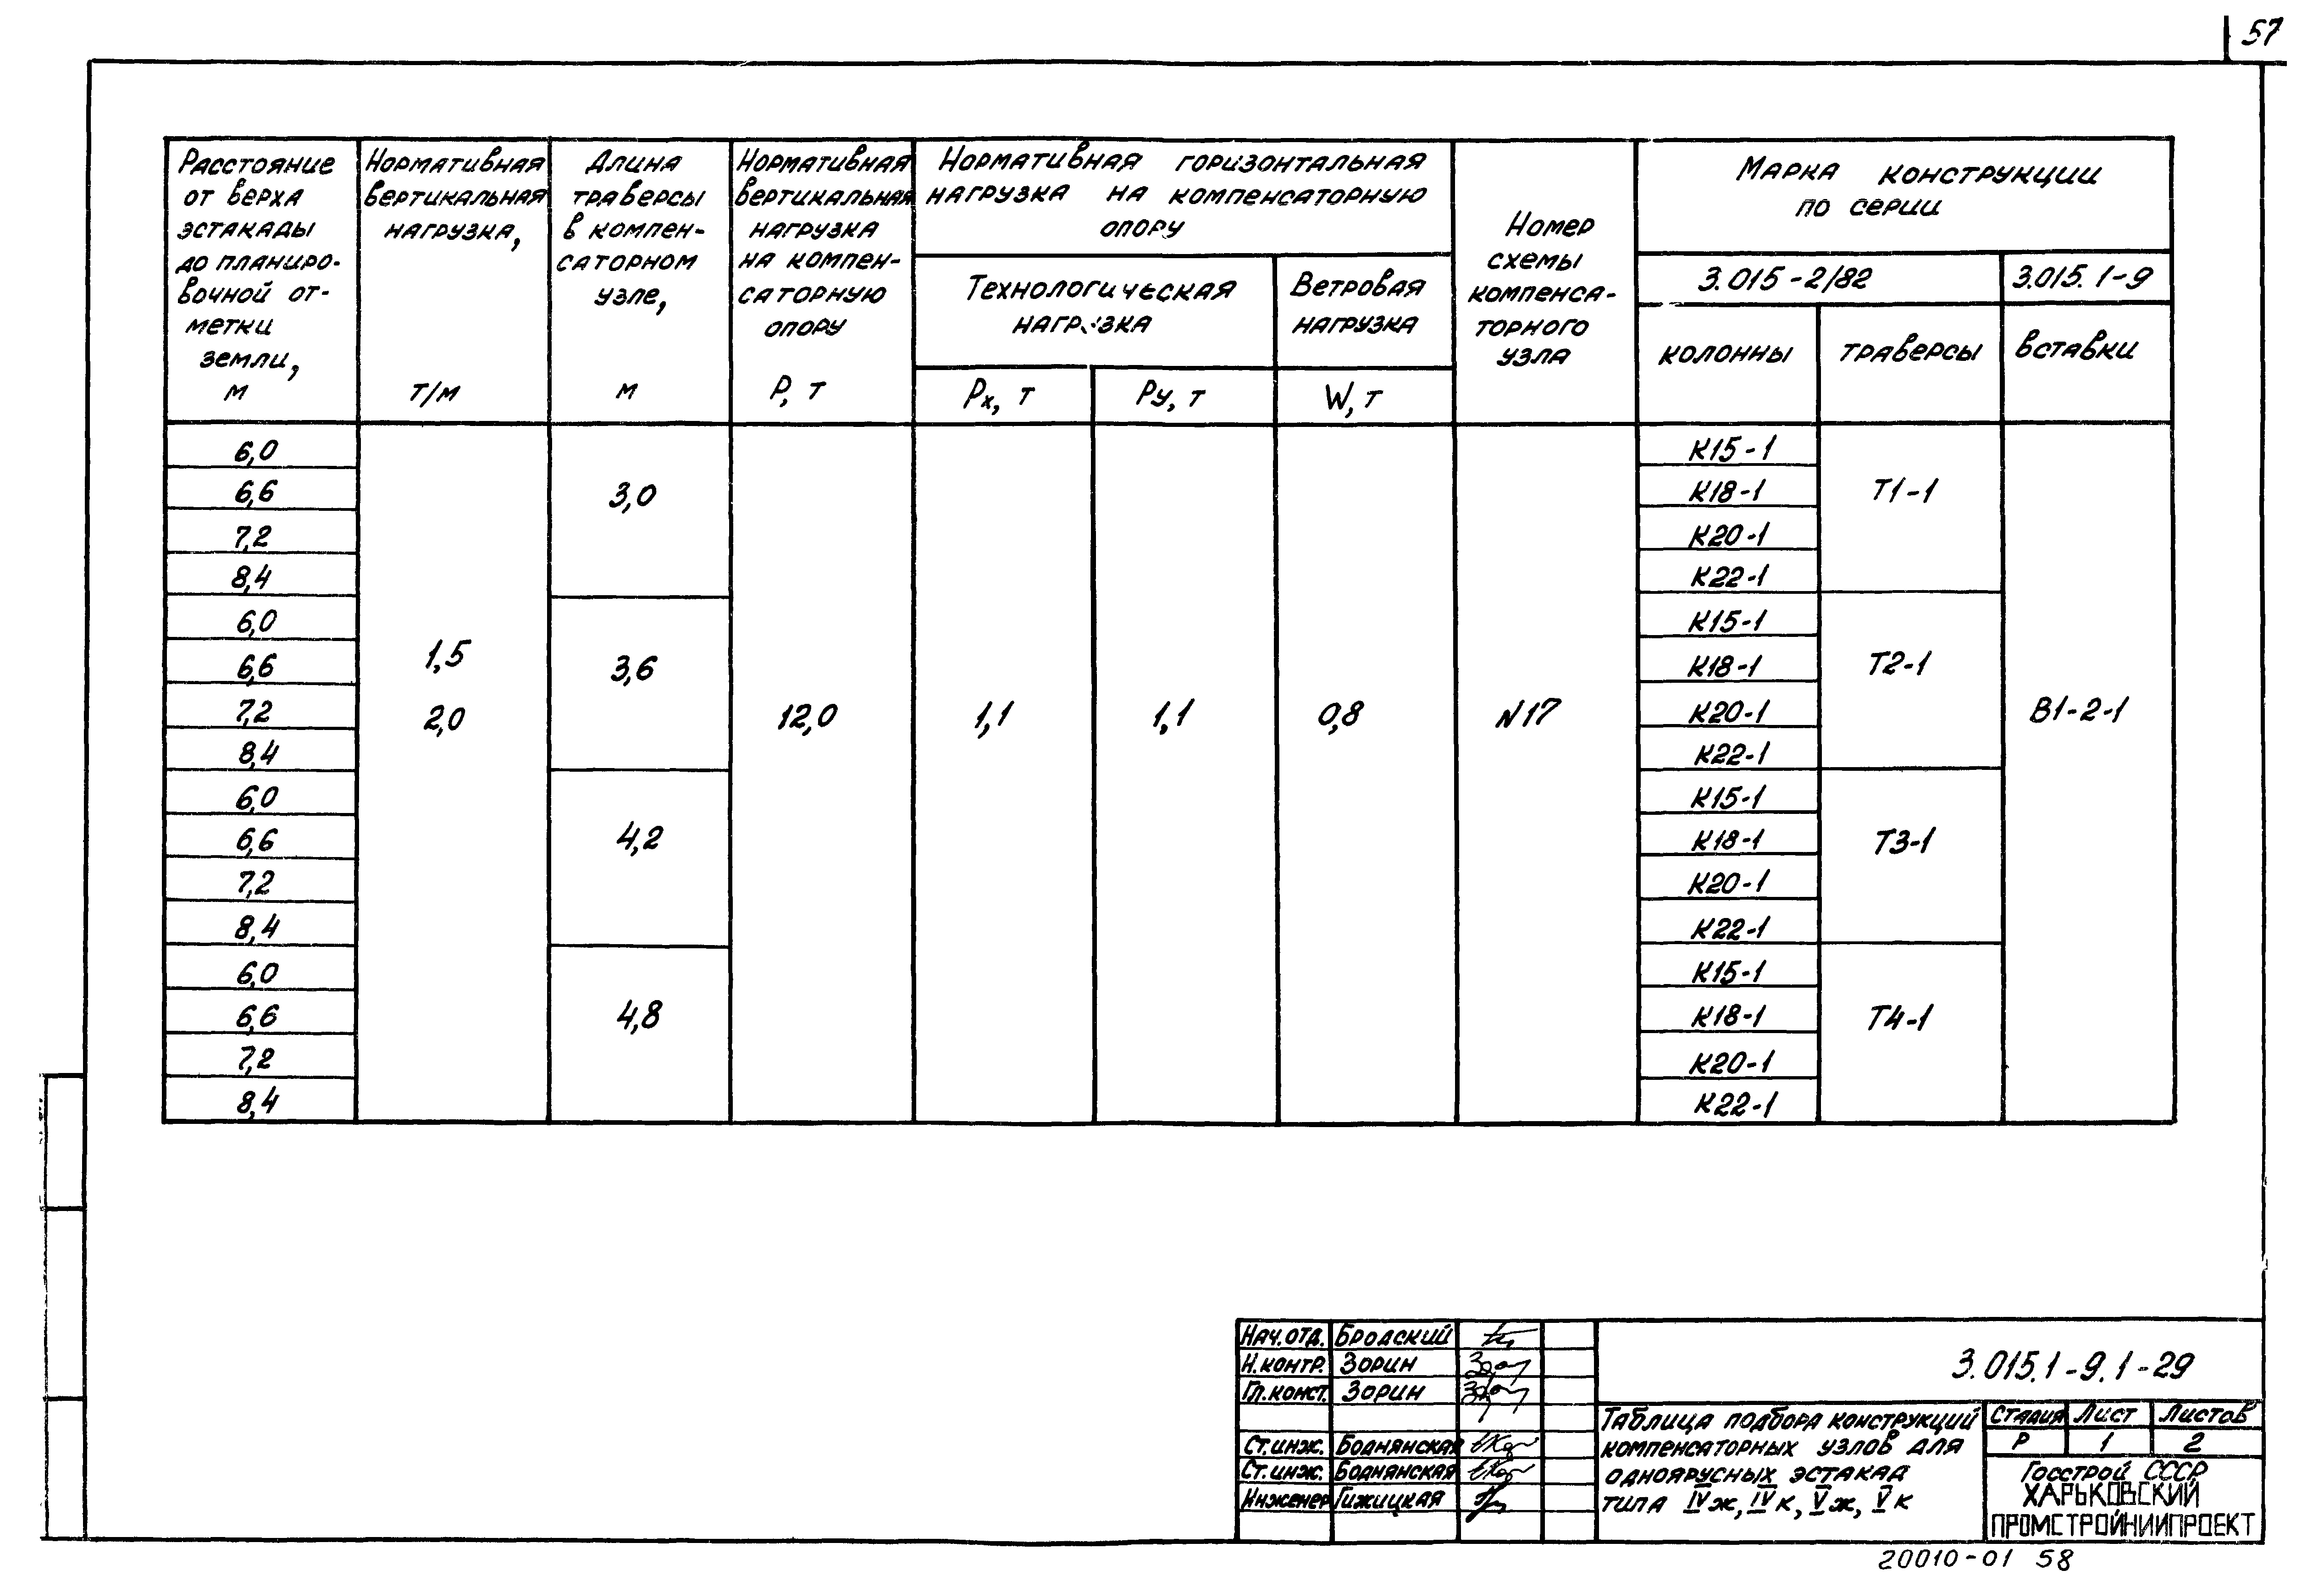 57
Расстояние
от верха
эстакады
до планиро-
вочной от-
метки
земли,
м
Нормативная
вертикальная
нагрузка,
т/м
Длина
траверсы
в компен-
саторном
узле,
м
Нормативная
вертикальная
нагрузка
на компен-
саторную
опору
P, т
Нормативная горизонтальная
нагрузка на компенсаторную
опору
Технологическая
нагрузка
Px, т
Py, т
Ветровая
нагрузка
W, т
Номер
схемы
компенса-
торного
узла
Марка конструкции
по серии
3.015-2/82
3.015.1-9
колонны
траверсы
вставки
6,0
6,6
7,2
8,4
6,0
6,6
7,2
8,4
6,0
6,6
7,2
8,4
6,0
6,6
7,2
8,4
1,5
2,0
3,0
3,6
4,2
4,8
12,0
1,1
1,1
0,8
N17
К15-1
К18-1
К20-1
К22-1
К15-1
К18-1
К20-1
К22-1
К15-1
К18-1
К20-1
К22-1
К15-1
К18-1
К20-1
К22-1
Т1-1
Т2-1
Т3-1
Т4-1
В1-2-1
Нач.отд. Бродский
Н.контр. Зорин
Гл.конст. Зорин
Ст.инж. Боднянская
Ст.инж. Боднянская
Инженер Гижицкая
3.015.1-9.1-29
Таблица подбора конструкций
компенсаторных узлов для
одноярусных эстакад
типа IVж, IVк, Vж, Vк
Стадия Лист Листов
Р 1 2
Госстрой СССР
ХАРЬКОВСКИЙ
ПРОМСТРОЙНИИПРОЕКТ
20010-01 58